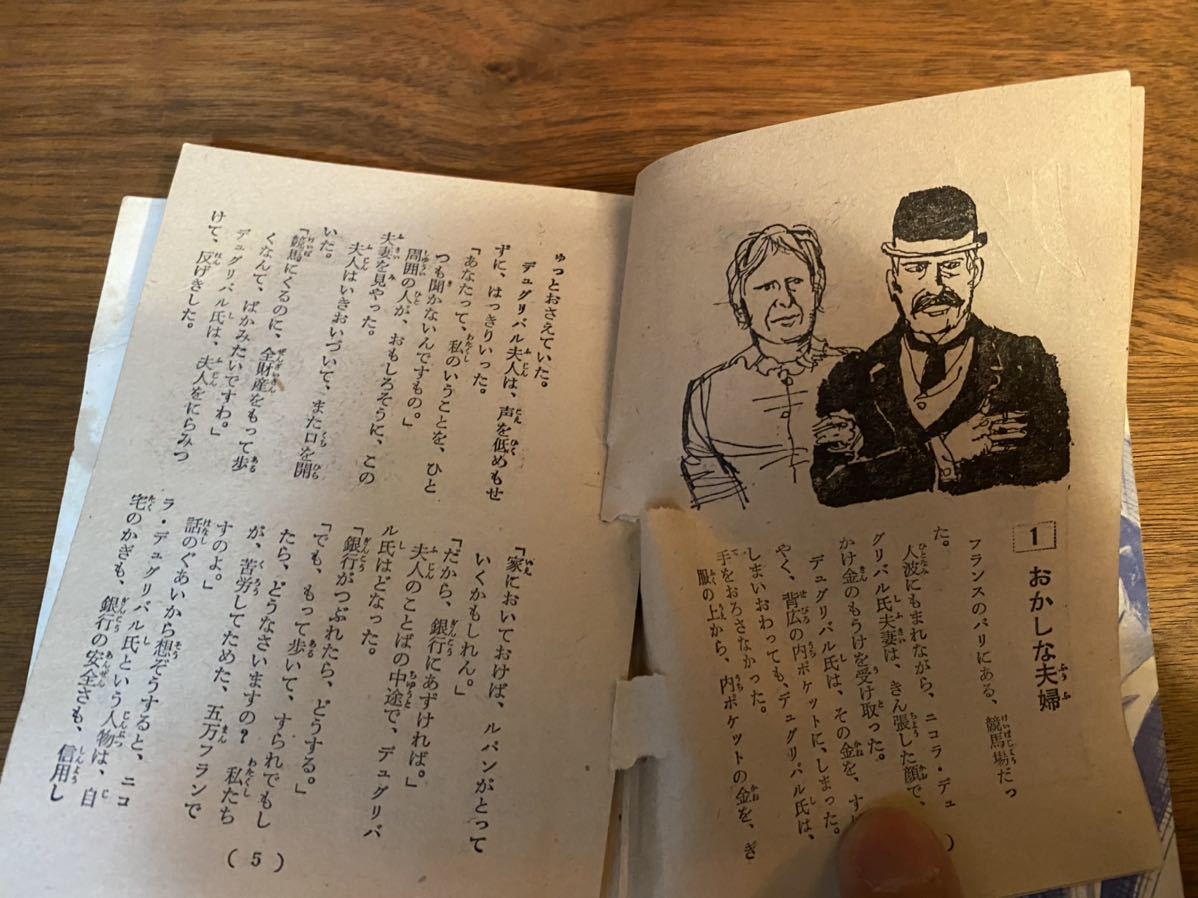 1 おかしな夫婦
フランスのパリにある、競馬場だっ
た。
人波にもまれながら、ニコラ・デュ
グリバル氏夫妻は、きん張した顔で、
かけ金のもうけを受け取った。
デュグリバル氏は、その金を、す
やく、背広の内ポケットに、しまった。
しまいおわっても、デュグリバル氏は、
手をおろさなかった。
服の上から、内ポケットの金を、ぎ
ゅっとおさえていた。
デュグリバル夫人は、声を低めもせ
ずに、はっきりいった。
「あなたって、私のいうことを、ひと
つも聞かないんですもの。」
周囲の人が、おもしろそうに、この
夫妻を見やった。
夫人はいきおいづいて、また口を開
いた。
「競馬にくるのに、全財産をもって歩
くなんて、ばかみたいですわ。」
デュグリバル氏は、夫人をにらみつ
けて、反げきした。
「家においておけば、ルパンがとって
いくかもしれん。」
「だから、銀行にあずければ。」
夫人のことばの中途で、デュグリバ
ル氏はどなった。
「銀行がつぶれたら、どうする。」
「でも、もって歩いて、すられでもし
たら、どうなさいますの？　私たち
が、苦労してためた、五万フランで
すのよ。」
話のぐあいから想ぞうすると、ニコ
ラ・デュグリバル氏という人物は、自
宅のかぎも、銀行の安全さも、信用し
( 5 )